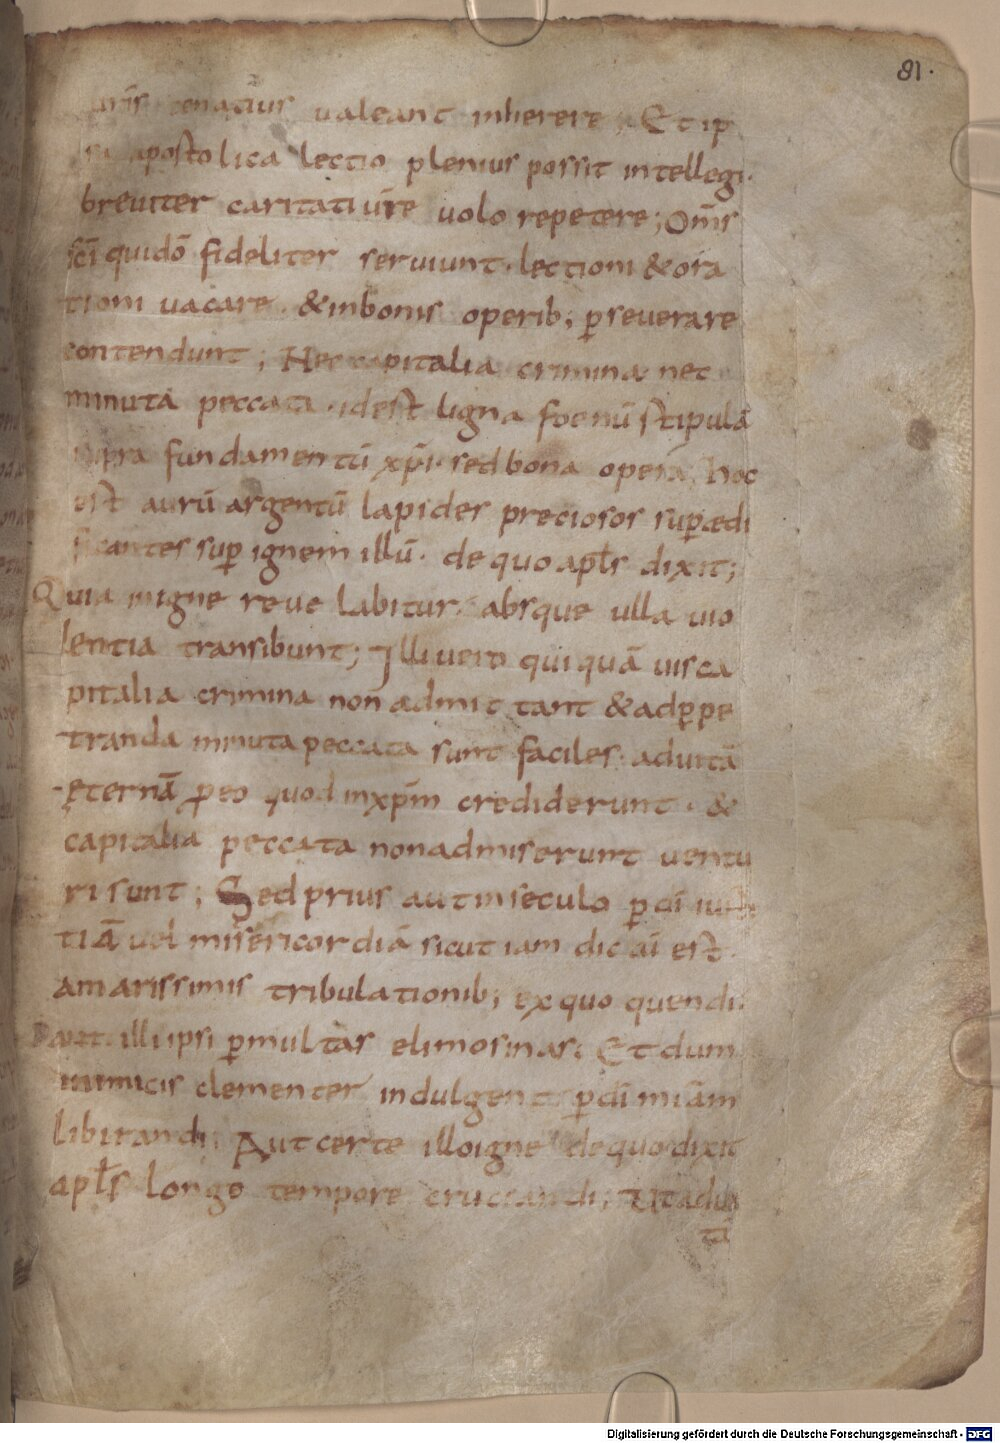 81.
uris tenatius valeant inherere; Et ip
sa apostolica lectio plenius possit intellegi.
breviter caritati vr̄e volo repetere; Om̄s
sc̄i qui dō fideliter serviunt. lectioni & ora
tioni vacare. & in bonis operib; p̱severare
contendunt; Nec capitalia crimina nec
minuta peccata. id est ligna foenū stipulā
supra fundamentū xp̄i. sed bona opera. hoc
est aurū argentū lapides preciosos sup̱ædi
ficantes sup̱ ignem illū. de quo apl̄s dixit;
Quia in igne revelabitur. absque ulla vio
lentia transibunt; Illi vero qui quā vis ca
pitalia crimina non admittant & ad p̱pe
tranda minuta peccata sunt faciles. ad vitā
ęternā p̱ eo quod in xp̄m crediderunt. &
capitalia peccata non admiserunt ventu
ri sunt; Sed prius aut in seculo p̱ dī iusti
tiā vel misericordiā sicut iam dictū est.
amarissimis tribulationib; ex quo quendi.
aut illi ipsi p̱ multas elimosinas. Et dum
inimicis clementer indulgent p̱ dī miām
liberandi. Aut certe illo igne de quo dixit
apl̄s longo tempore cruciandi; Ut ad vi
tā
Digitalisierung gefördert durch die Deutsche Forschungsgemeinschaft - DFG